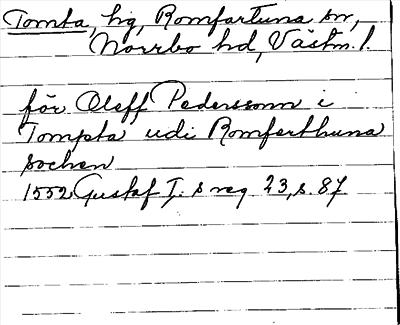 Tomta, hg, Romfartuna sn,
Norrbo hd, Västm. l.
för Oleff Pedersson i
Tompta udi Romferthuna
sochen
1552 Gustaf I:s reg 23, s. 87